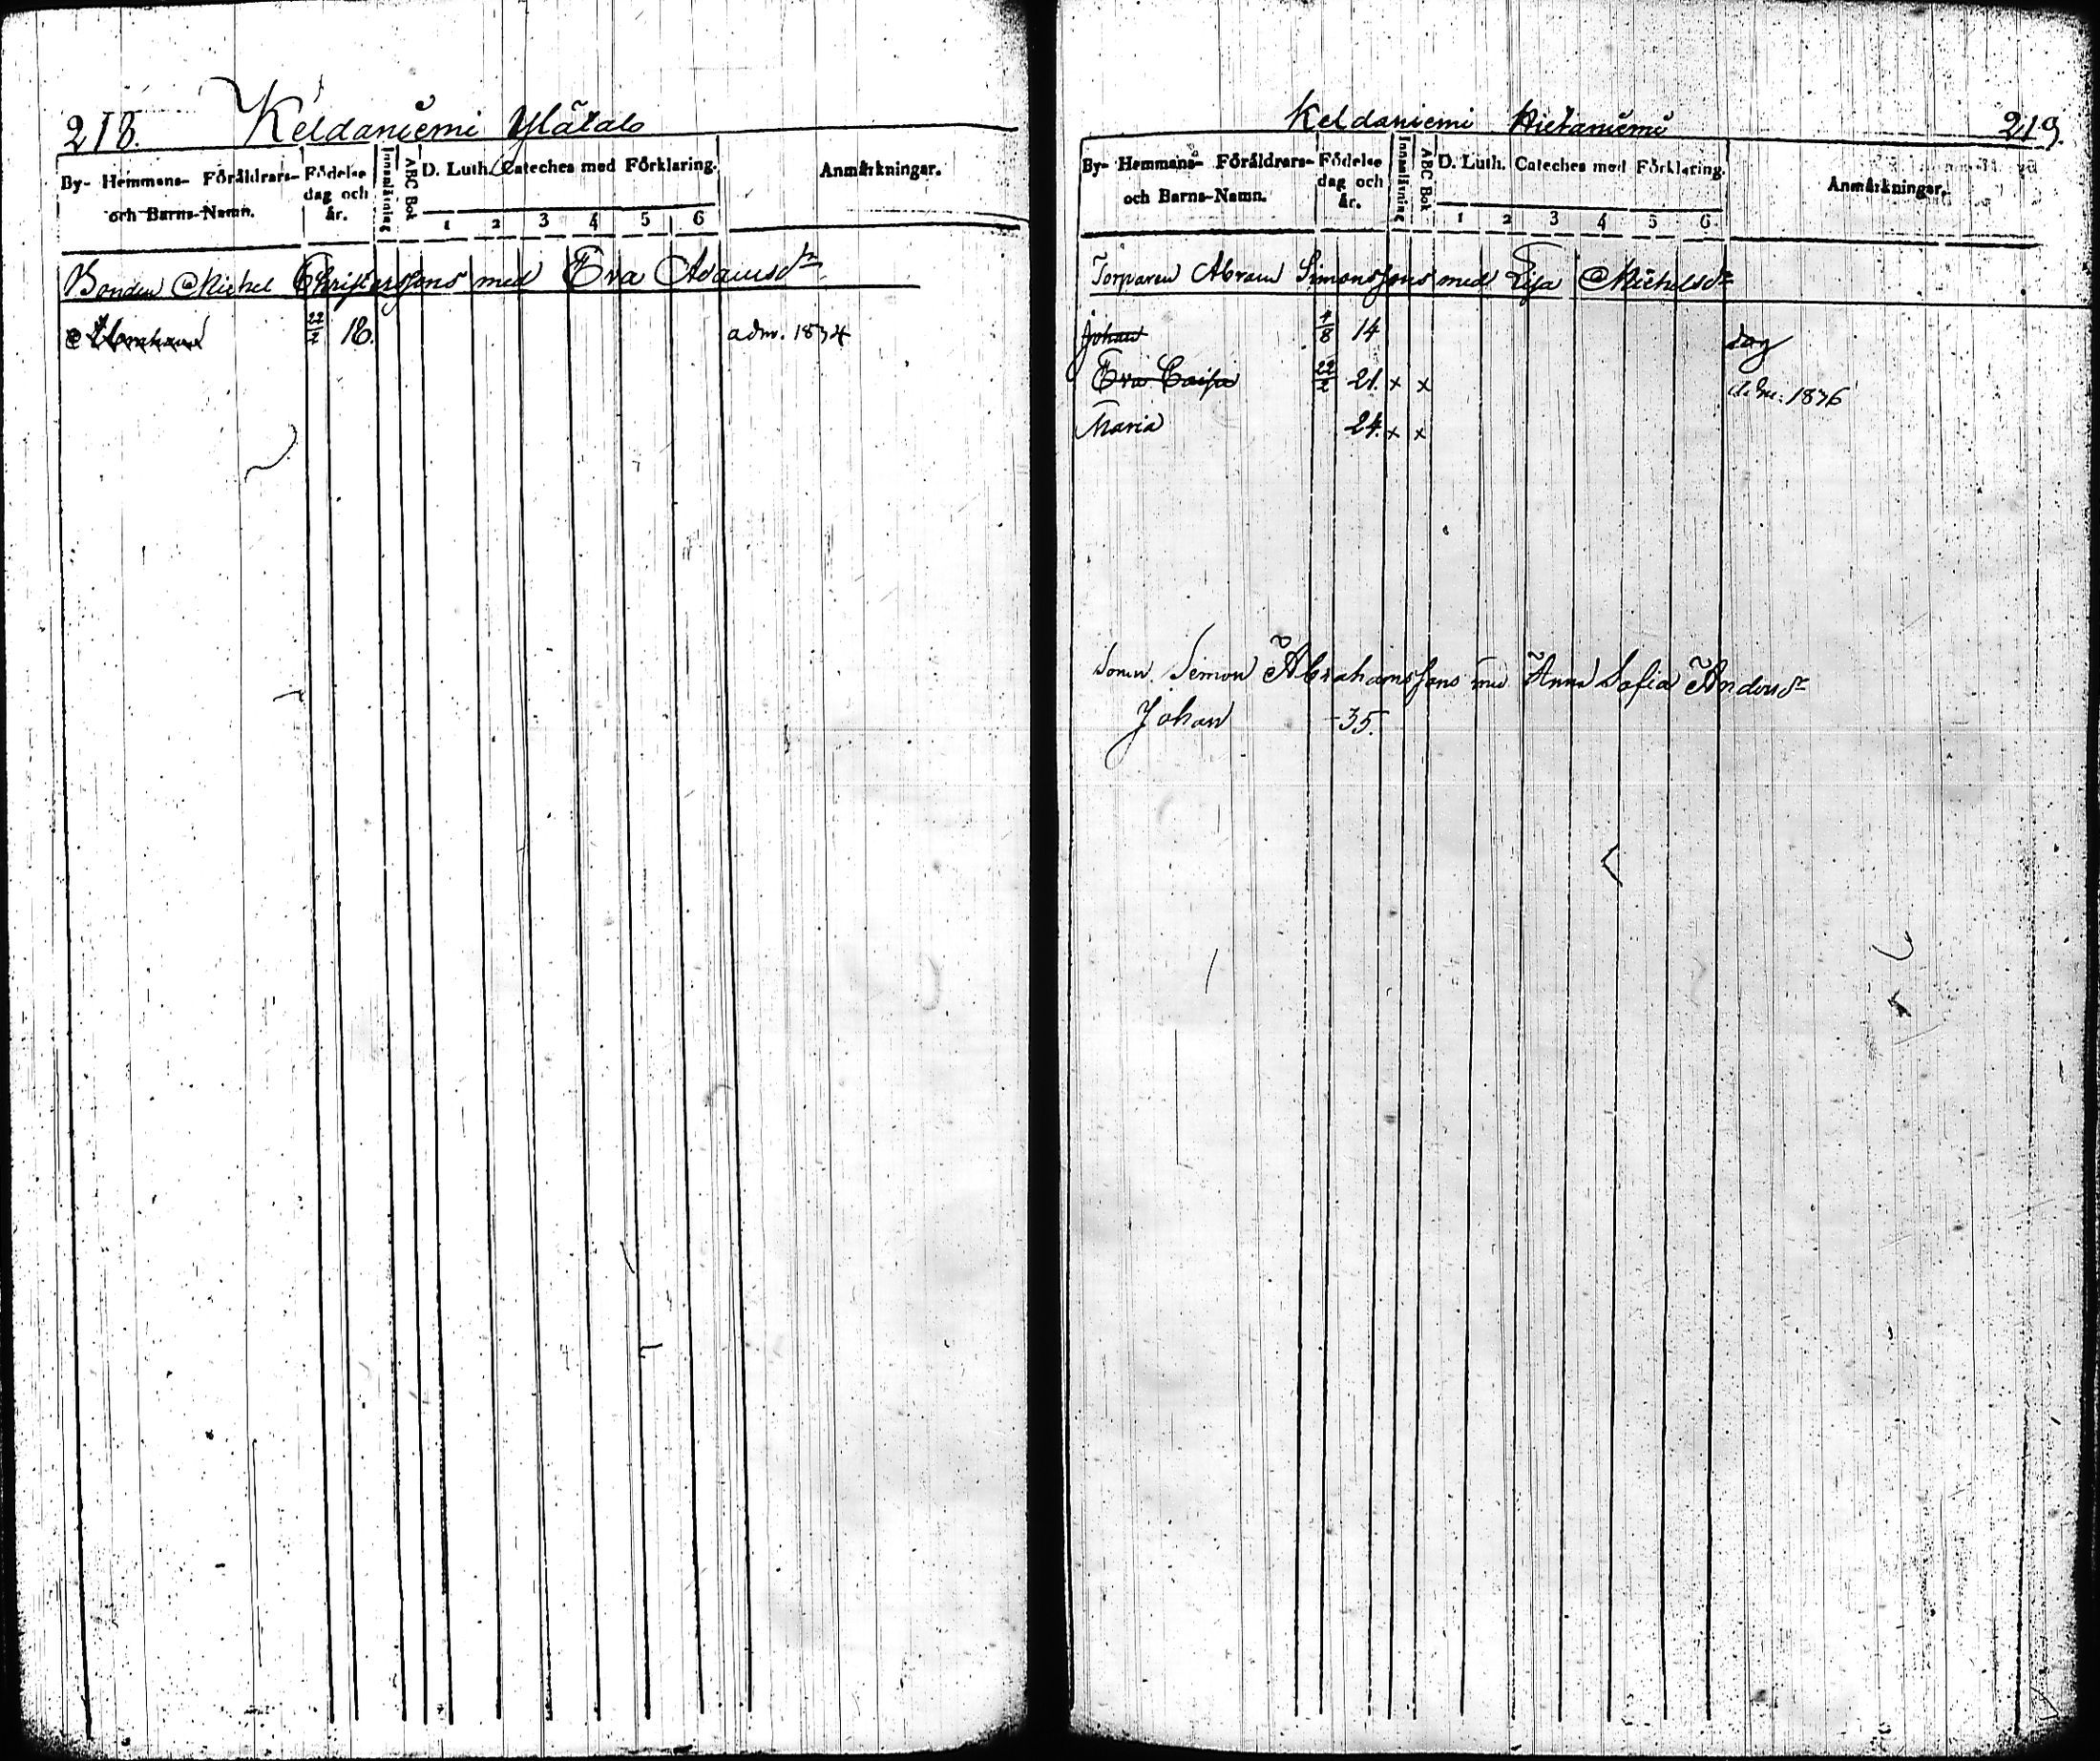 218. Keldaniemi Ylätalo
By- Hemmans- Föräldrars- och Barns-Namn.
Födelse dag och år.
Innanläsning
ABC Bok
D. Luth. Cateches med Förklaring.
1 2 3 4 5 6
Anmärkningar.
Bonden Michel Christerssons med Eva Adamsdr
22/2 18. adm. 1834
Keldaniemi Hietaniemi 219.
By- Hemmans- Föräldrars- och Barns-Namn.
Födelse dag och år.
Innanläsning
ABC Bok
D. Luth. Cateches med Förklaring.
1 2 3 4 5 6.
Anmärkningar.
Torparen Abram Simonssons med Lisa Michelsdr
Johan 4/8 14
Eva Caisa 22/2 21. x x adm: 1836
Maria 24. x x
Sonen Simon Abrahamssons med Anna Sofia Andersdr
Johan -35.